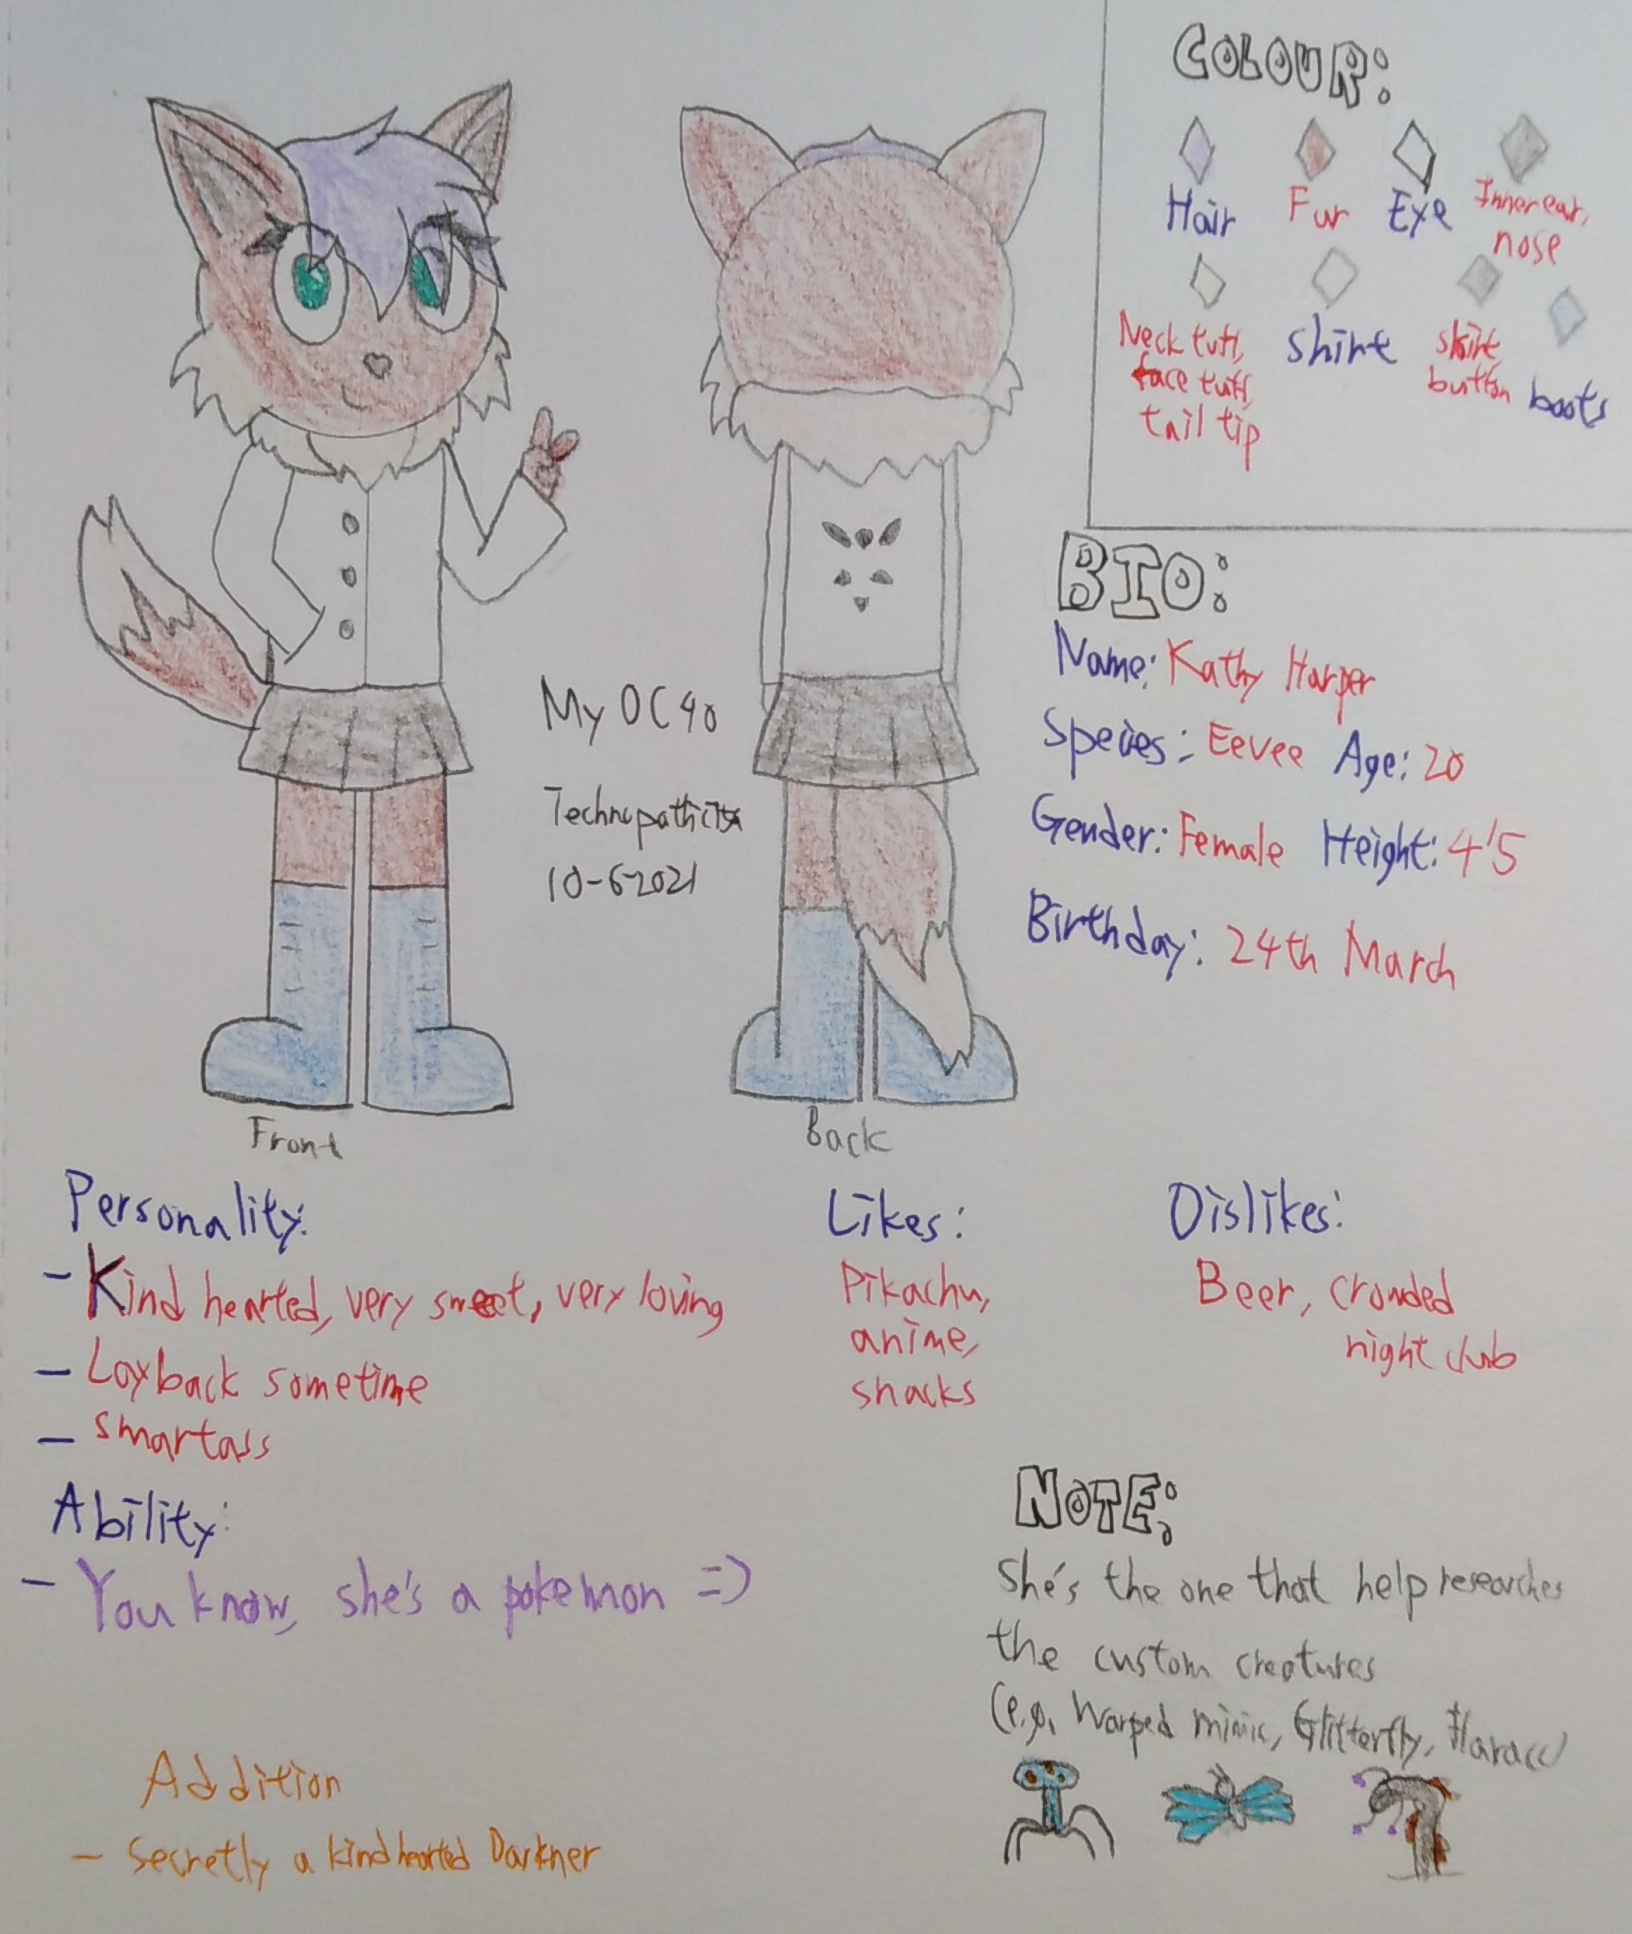 COLOUR:
Hair Fur Eye Inner ear,
nose
Neck tuff, shirt skirt
face tuff, button boots
tail tip
BIO:
Name: Kathy Harper
Species: Eevee Age: 20
Gender: Female Height: 4'5
Birthday: 24th March
My OC 40
10-6-2021
Front Back
Personality:
- Kind hearted, very sweet, very loving
- Layback sometime
- smartass
Likes:
Pikachu,
anime,
snacks
Dislikes:
Beer, crowded
night club
Ability:
- You know, she's a pokemon =)
NOTE:
She's the one that help researches
the custom creatures
(e.g. Warped mimic, Glitterfly,
Addition
- Secretly a kindhearted Darkner